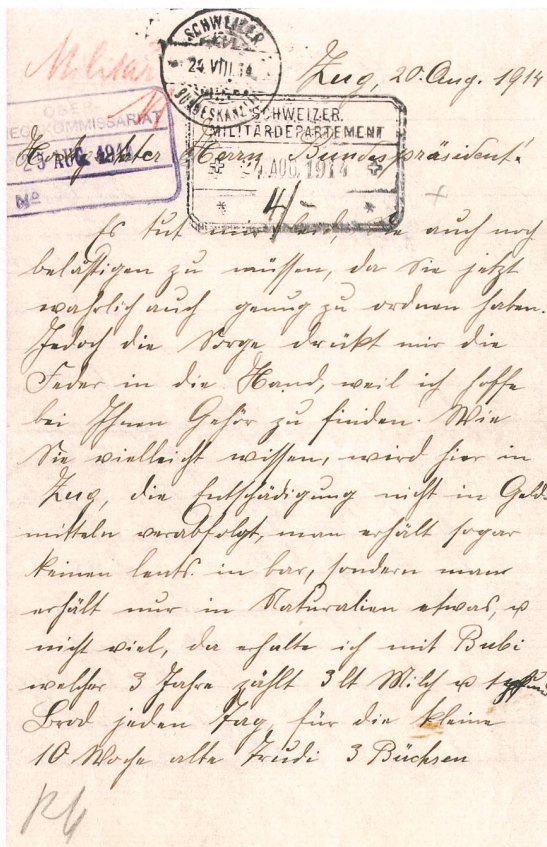 Militär
SCHWEIZER.
24.VIII.14
BUNDESKANZLEI
Zug, 20. Aug. 1914
OBER-
KRIEGSKOMMISSARIAT
25 AUG. 1914
No
SCHWEIZER.
MILITÄRDEPARTEMENT
24. AUG. 1914
4/-
Herrn Bundespräsident!
Es tut mir leid, Sie auch noch
belästigen zu müssen, da Sie jetzt
wahrlich auch genug zu ordnen haben.
Jedoch die Sorge drükt mir die
Feder in die Hand, weil ich hoffe
bei Ihnen Gehör zu finden. Wie
Sie vielleicht wissen, wird hier in
Zug, die Entschädigung nicht in Geld
mitteln verabfolgt, man erhält sogar
keinen Cents. in bar, sondern man
erhält nur in Naturalien etwas, u
nicht viel, da erhalte ich mit Bubi
welcher 3 Jahre zählt 3 lt Milch u
Brod jeden Tag, für die kleine
10 Woche alte Trudi 3 Büchsen